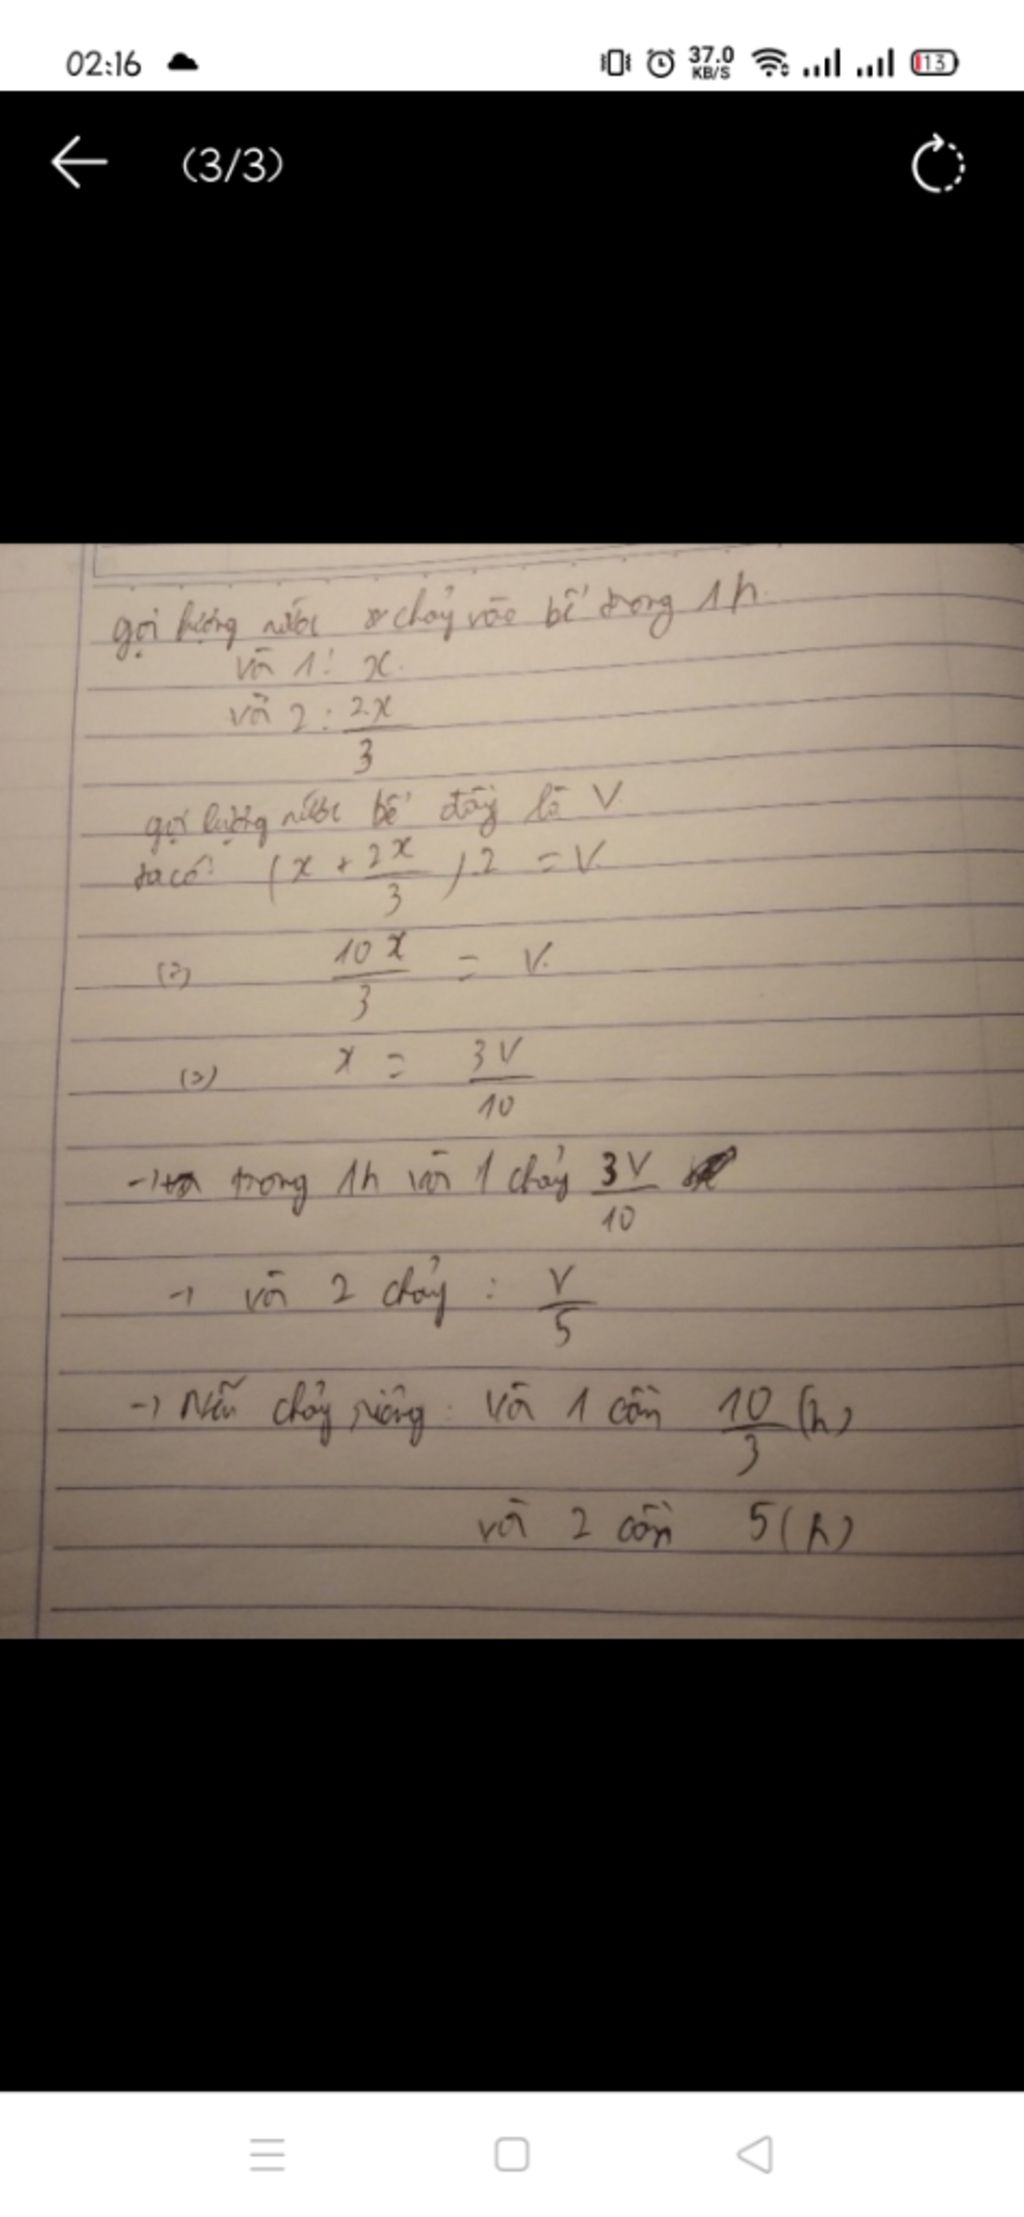 02:16
37.0
KB/S
13
(3/3)
gọi lượng nước chảy vào bể trong 1h
vòi 1: x.
vòi 2: 2x/3
gọi lượng nước bể đầy là V
ta có: (x + 2x/3).2 = V
(=) 10x/3 = V.
(=) x = 3V/10
→ trong 1h vòi 1 chảy 3V/10
→ vòi 2 chảy: V/5
→ Nếu chảy riêng: vòi 1 cần 10/3 (h)
vòi 2 cần 5(h)